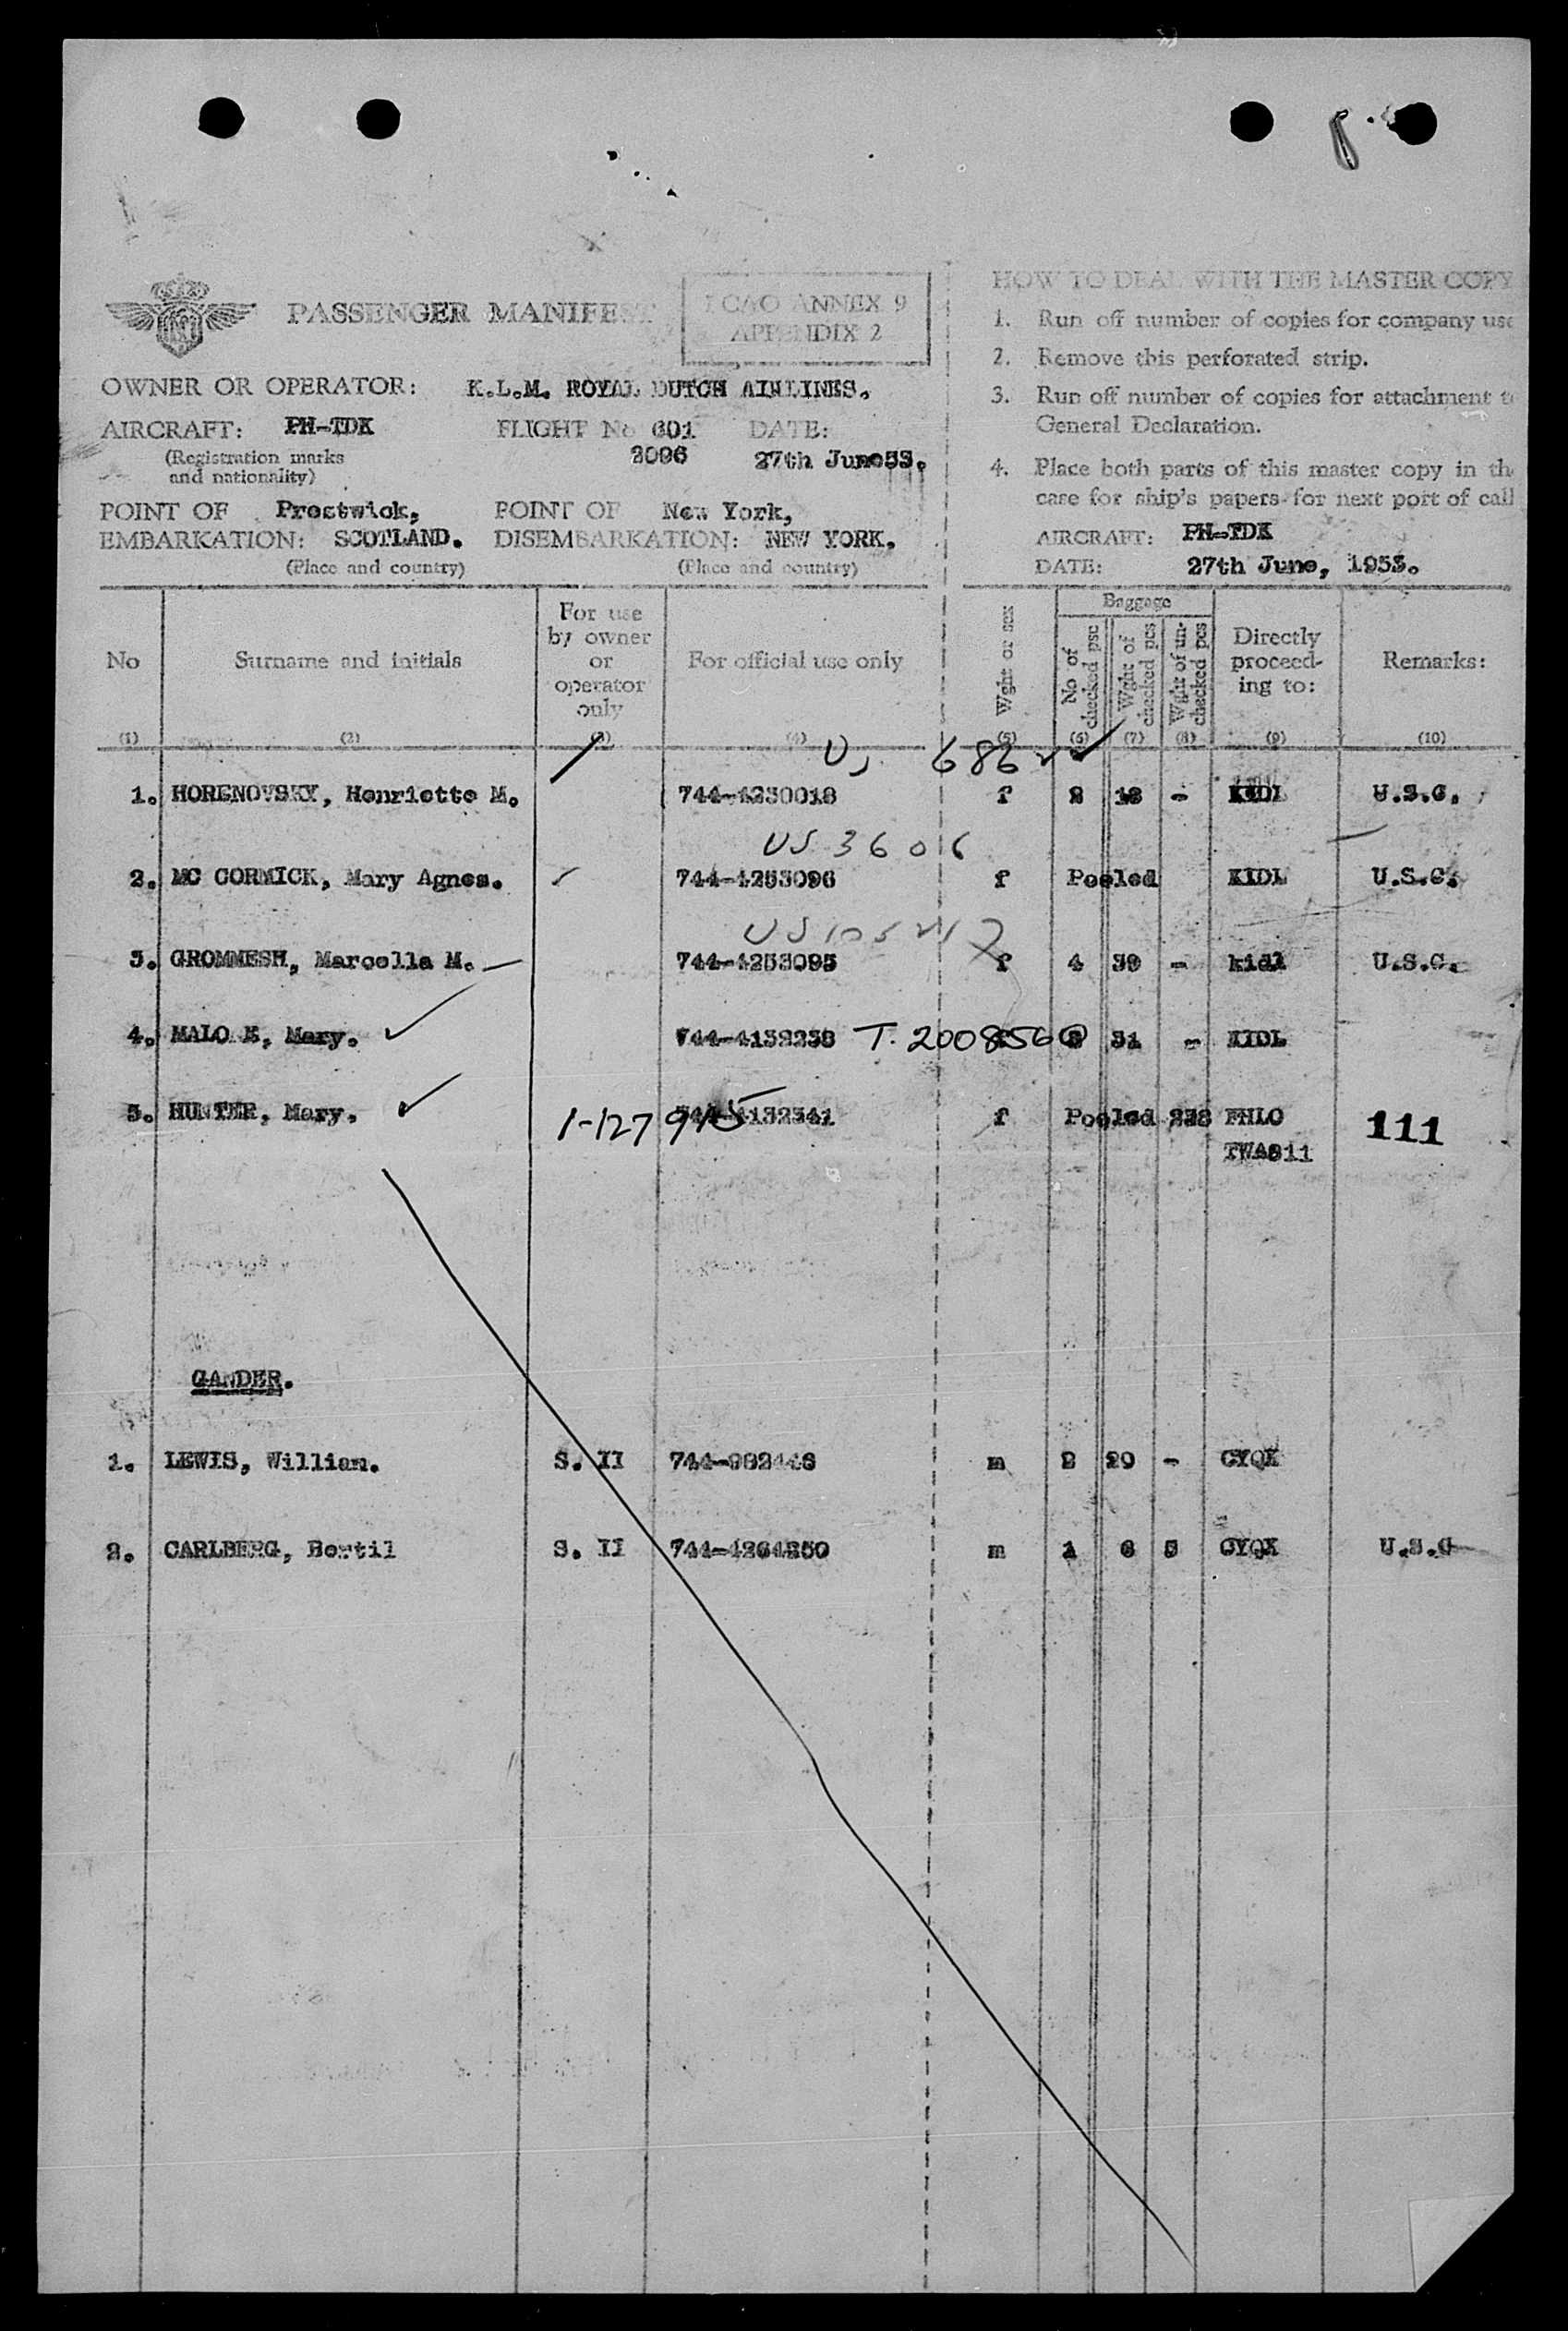 PASSENGER MANIFEST
I CAO ANNEX 9
APPENDIX 2
OWNER OR OPERATOR: K.L.M. ROYAL DUTCH AIRLINES.
AIRCRAFT: PH-TDK FLIGHT No 601 DATE:
(Registration marks
and nationality)
2096 27th June53.
POINT OF Prestwick, POINT OF New York,
EMBARKATION: SCOTLAND. DISEMBARKATION: NEW YORK.
(Place and country) (Place and country)
HOW TO DEAL WITH THE MASTER COPY
1. Run off number of copies for company use
2. Remove this perforated strip.
3. Run off number of copies for attachment to
General Declaration.
4. Place both parts of this master copy in the
case for ship's papers for next port of call
AIRCRAFT: PH-TDK
DATE: 27th June, 1953.
No Surname and initials For use by owner or operator only For official use only Wght or sex Baggage No of checked psc Wght of checked pcs Wght of un-checked pcs Directly proceed-ing to: Remarks:
(1) (2) (3) (4) (5) (6) (7) (8) (9) (10)
US 686
1. HORENOVSKY, Henriette M. 744-4230018 f 2 18 - KIDL U.S.C.
US 3606
2. MC CORMICK, Mary Agnes. 744-4253096 f Pooled KIDL U.S.C.
US
3. GROMMESH, Marcella M. 744-4253095 f 4 39 - kidl U.S.C.
4. MALO E, Mary. 744-4132238 T. 200856 31 - KIDL
5. HUNTER, Mary. 1-127 945 f Pooled FHLO 111
TWA911
GANDER.
1. LEWIS, William. S. II m 2 20 - CYQX
2. CARLBERG, Bertil S. II 744-4264250 m 1 6 5 CYQX U.S.C